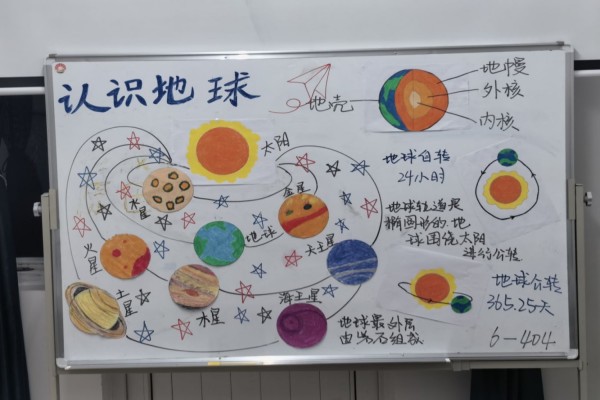 认识地球
地壳
地幔
外核
内核
太阳
水星
金星
地球
火星
天王星
土星
木星
海王星
地球自转
24小时
地球轨道是
椭圆形的地
球围绕太阳
进行公转
地球公转
365.25天
地球最外层
由岩石组成
6-404